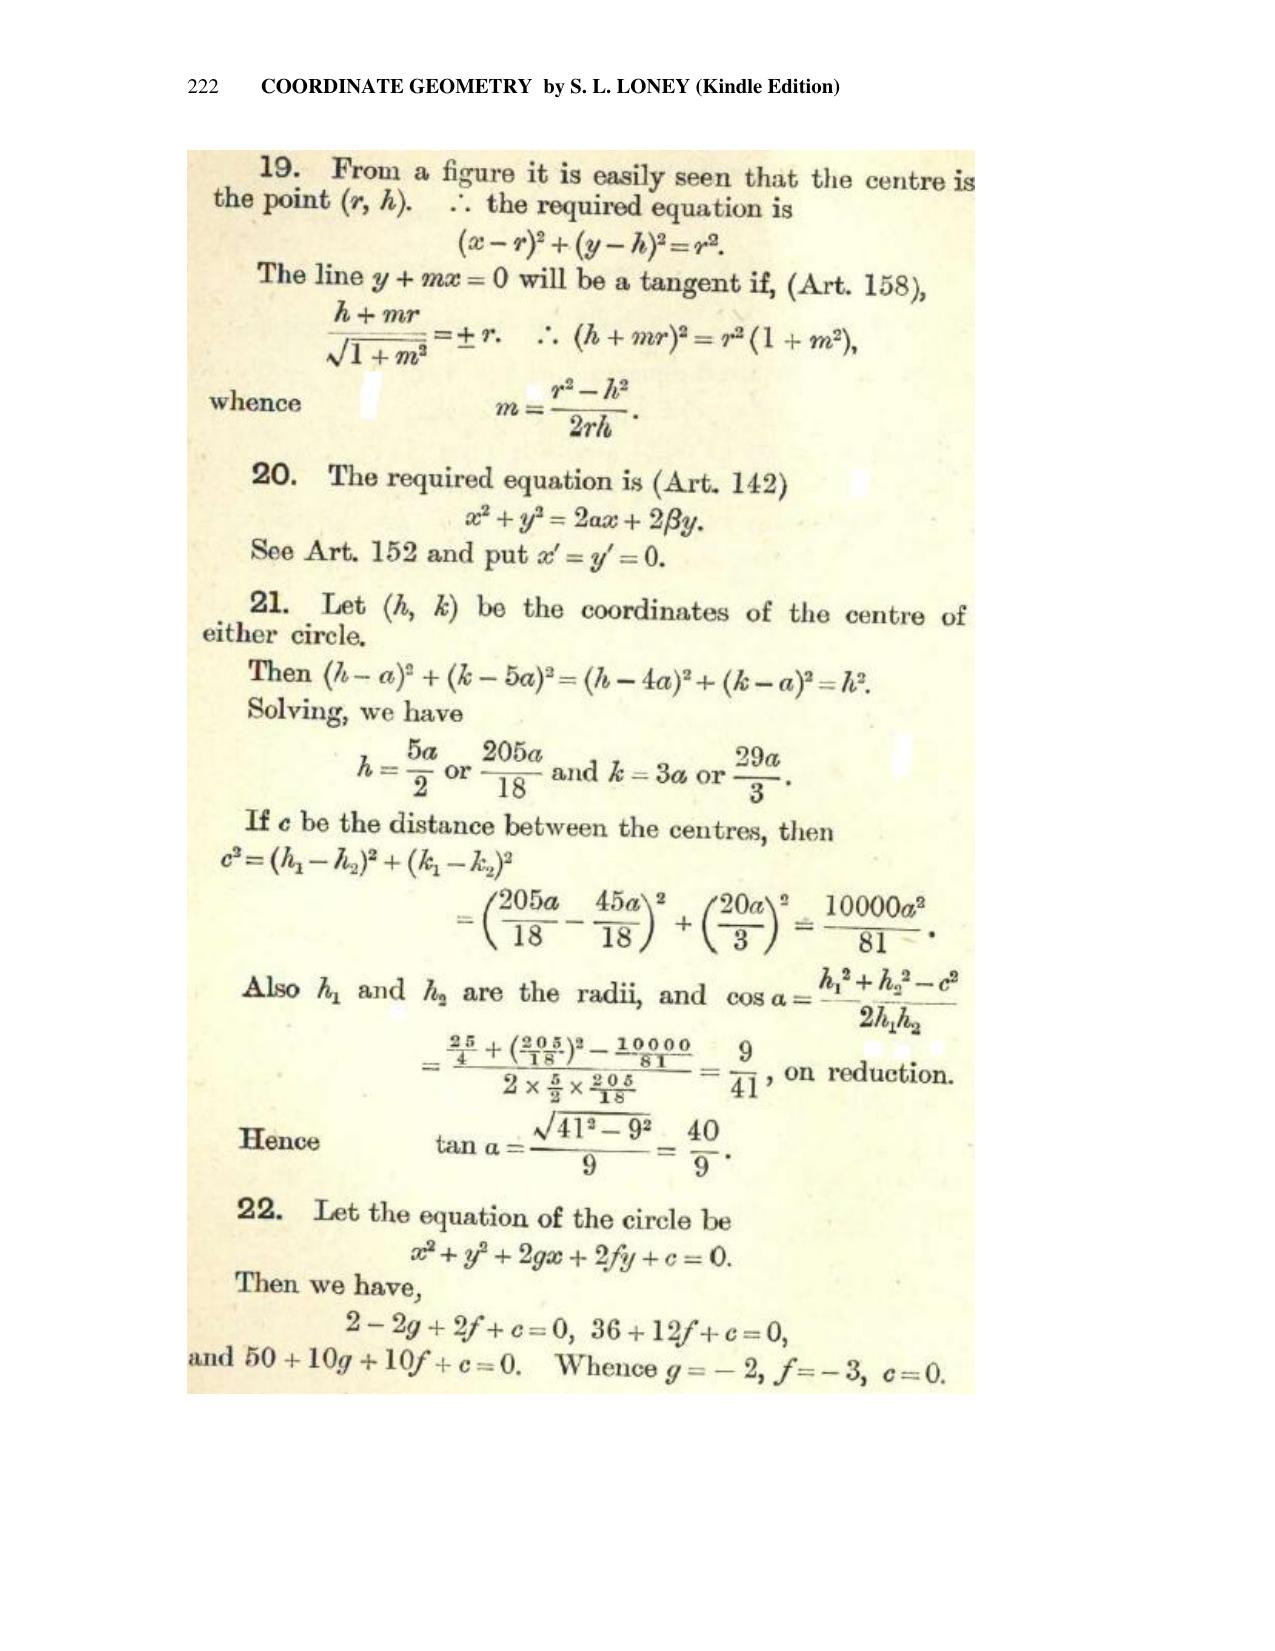 222 COORDINATE GEOMETRY by S. L. LONEY (Kindle Edition)
19. From a figure it is easily seen that the centre is
the point (r, h). ∴ the required equation is
(x − r)² + (y − h)² = r².
The line y + mx = 0 will be a tangent if, (Art. 158),
(h + mr)/√(1 + m²) = ± r. ∴ (h + mr)² = r² (1 + m²),
whence m = (r² − h²)/(2rh).
20. The required equation is (Art. 142)
x² + y² = 2ax + 2βy.
See Art. 152 and put x′ = y′ = 0.
21. Let (h, k) be the coordinates of the centre of
either circle.
Then (h − a)² + (k − 5a)² = (h − 4a)² + (k − a)² = h².
Solving, we have
h = 5a/2 or 205a/18 and k = 3a or 29a/3.
If c be the distance between the centres, then
c² = (h₁ − h₂)² + (k₁ − k₂)²
= (205a/18 − 45a/18)² + (20a/3)² = 10000a²/81.
Also h₁ and h₂ are the radii, and cos α = (h₁² + h₂² − c²)/(2h₁h₂)
= (25/4 + (205/18)² − 10000/81)/(2 × 5/2 × 205/18) = 9/41, on reduction.
Hence tan α = √(41² − 9²)/9 = 40/9.
22. Let the equation of the circle be
x² + y² + 2gx + 2fy + c = 0.
Then we have,
2 − 2g + 2f + c = 0, 36 + 12f + c = 0,
and 50 + 10g + 10f + c = 0. Whence g = − 2, f = − 3, c = 0.